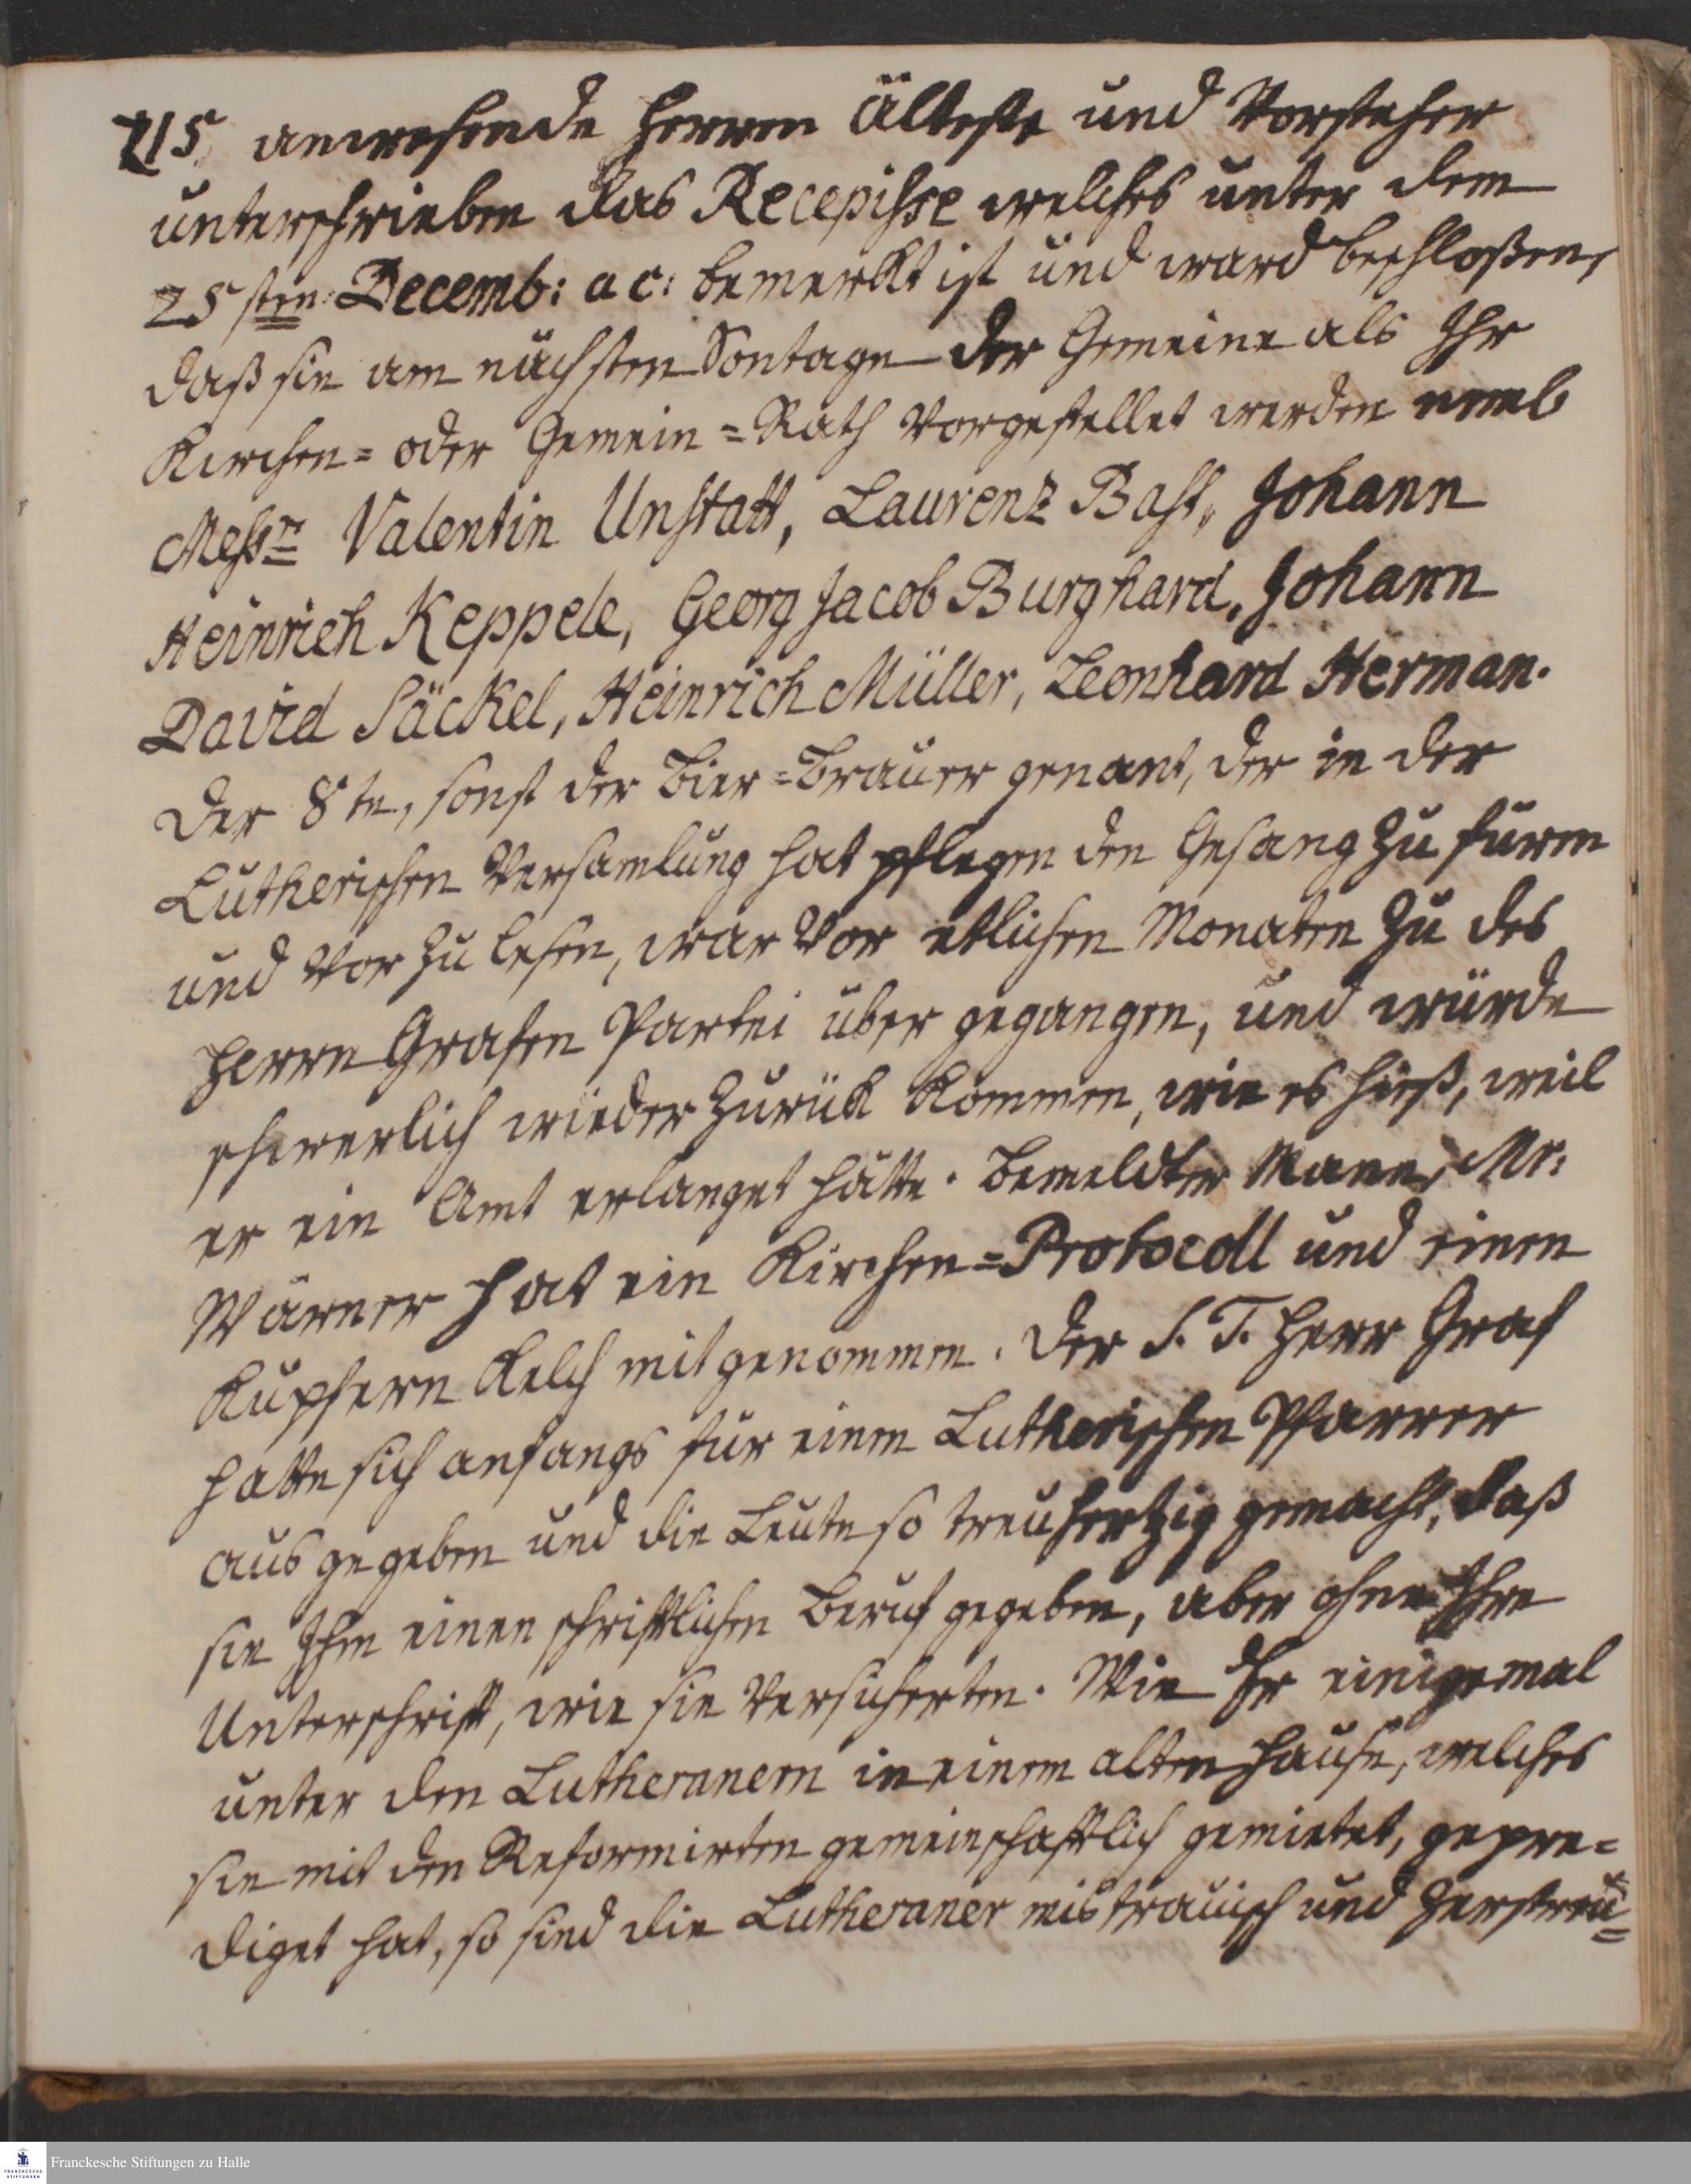 215 anwesende Herren Älteste und Vorsteher
unterschrieben das Recepisse welches unter dem
25sten Decemb: a c: bemerkt ist und ward beschloßen,
daß sie am nächsten Sontage der Gemeine als Ihr
Kirchen= oder Gemein=Rath vorgestellet werden neml
Messrs Valentin Unstatt, Laurenz Bast, Johann
Heinrich Keppele, Georg Jacob Burghard, Johann
David Säckel, Heinrich Müller, Leonhard Herman.
Der 8te, sonst der Bier=Brauer genant, der in der
Lutherischen Versamlung hat pflegen den Gesang zu füren
und vor zu lesen, war vor etlichen Monaten zu des
Herrn Grafen Partei über gegangen, und würde
schwerlich wieder zurük kommen, wie es hieß, weil
er ein Amt erlanget hätte. Bemeldter Mann, Mr:
Wärner hat ein Kirchen=Protocoll und einen
Kupfern Kelch mit genommen. Der S. T. Herr Graf
hatte sich anfangs für einen Lutherischen Pfarrer
aus gegeben und die Leute so treuhertzig gemacht, daß
sie Ihm einen schriftlichen Beruf gegeben, aber ohne Ihre
Unterschrift, wie sie versicherten. Wie Er einigemal
unter den Lutheranern in einem alten Hause, welches
sie mit den Reformirten gemeinschaftlich gemietet, gepre=
diget hat, so sind die Lutheraner mistrauisch und zerstreu=
Franckesche Stiftungen zu Halle